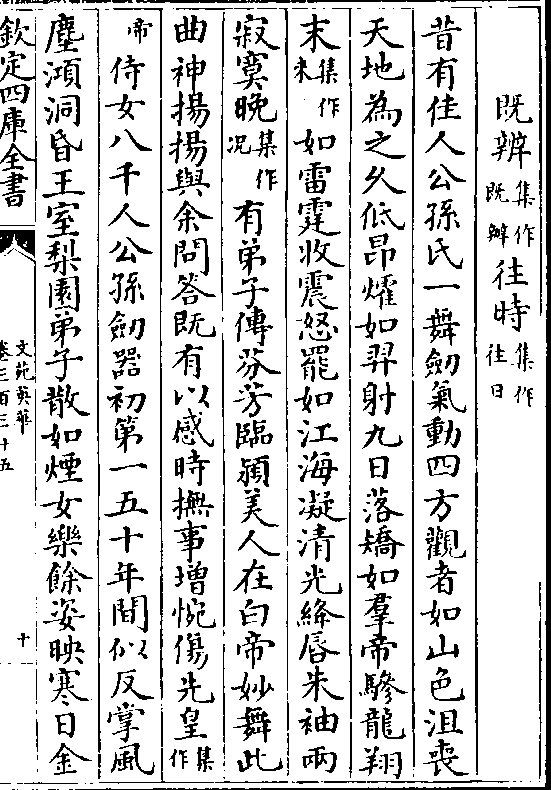 既辨集作既辦往時集作往日
昔有佳人公孫氏一舞劔氣動四方觀者如山色沮喪
天地為之乆低昂燿如羿射九日落矯如羣帝驂龍翔
末集作来如雷霆收震怒罷如江海凝清光絳唇朱袖兩
寂寞晚集作况有弟子傳芬芳臨潁美人在白帝妙舞此
曲神揚揚與余問答既有以感時撫事增惋傷先皇集作
帝侍女八千人公孫劔器初第一五十年間似反掌風
塵澒洞昏王室梨園弟子散如煙女樂餘姿映寒日金
欽定四庫全書
文苑英華
卷三百三十五
十